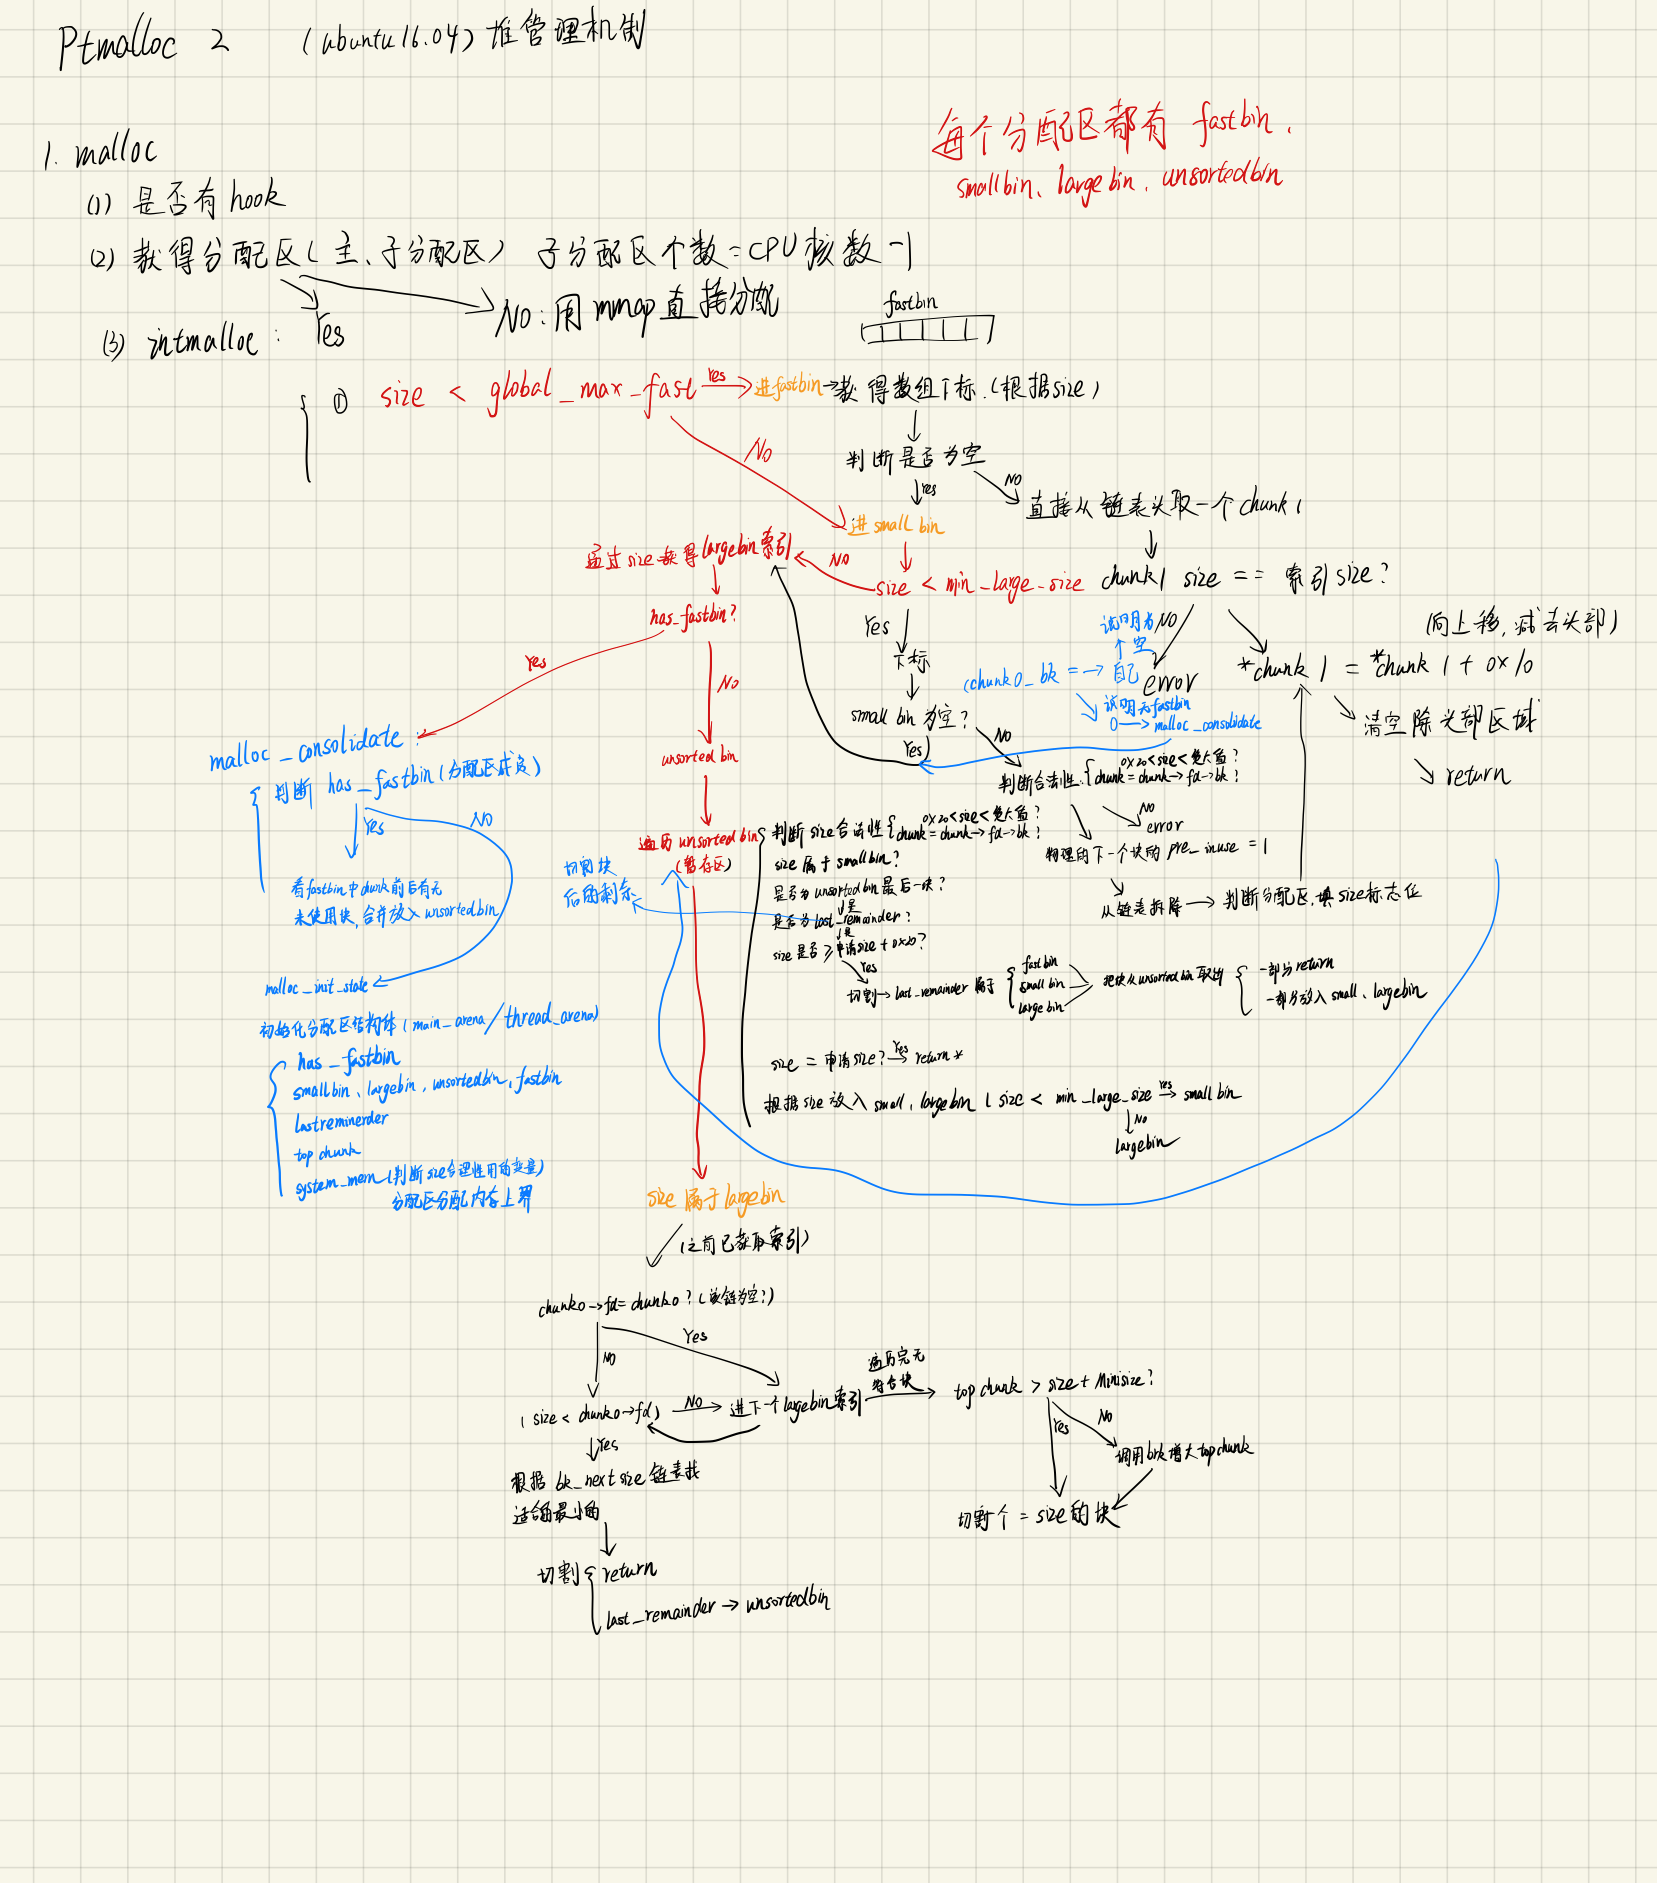 Ptmalloc 2 (ubuntu16.04) 堆管理机制
每个分配区都有 fastbin、
smallbin、largebin、unsortedbin
1. malloc
(1) 是否有hook
(2) 获得分配区(主、子分配区) 子分配区个数=CPU核数-1
Yes
No:用mmap直接分配
(3) intmalloc:
fastbin
① size < global_max_fast Yes 进fastbin→获得数组下标.(根据size)
No
判断是否为空
Yes
No
直接从链表头取一个chunk1
进small bin
通过size获得largebin索引
No
size < min_large_size
chunk1 size == 索引size?
has_fastbin?
Yes
No
Yes
下标
说明为
空
No
error
(chunk0_bk =→自己
说明无fastbin
0→malloc_consolidate
(向上移,减去头部)
*chunk1 = *chunk1 + 0x10
清空除头部区域
return
small bin为空?
Yes
No
判断合法性{0x20<size<
chunk=chunk→fd→bk?
No
error
物理的下一个块的pre_inuse=1
从链表拆除→判断分配区,填size标志位
malloc_consolidate:
判断has_fastbin(分配区成员)
Yes
No
看fastbin中chunk前后有无
未使用块,合并放入unsortedbin
malloc_init_state
初始化分配区结构体(main_arena/thread_arena)
has_fastbin
smallbin、largebin、unsortedbin,fastbin
lastreminerder
top chunk
system_mem(判断size合理性用的变量)
分配区分配内存上界
unsorted bin
遍历unsorted bin
(暂存区)
切割块
后的剩余
判断size合法性{0x20<size<
chunk=chunk→fd→bk?
size属于smallbin?
是否为unsortedbin最后一块?
是
是否为last_remainder?
是
size是否≥申请size+0x20?
Yes
切割→last_remainder属于
fastbin
small bin
large bin
把块从unsortedbin取出
一部分return
一部分放入small、largebin
size = 申请size? Yes return*
根据size放入small、largebin (size < min_large_size Yes small bin
No
largebin
size属于largebin
(之前已获取索引)
chunk0→fd=chunk0?(该链为空?)
No
Yes
(size < chunk0→fd) No 进下一个largebin索引
遍历完无
符合块
top chunk > size+Minisize?
Yes
No
调用brk增大topchunk
切割个=size的块
Yes
根据bk_nextsize链表找
适合的最小的
切割
return
last_remainder→unsortedbin